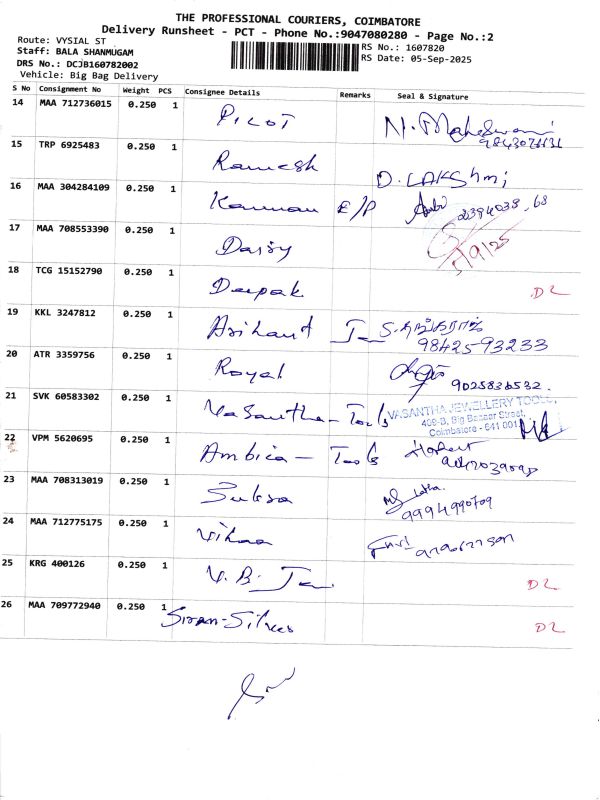 THE PROFESSIONAL COURIERS, COIMBATORE
Delivery Runsheet - PCT - Phone No.:9047080280 - Page No.:2
Route: VYSIAL ST
RS No.: 1607820
Staff: BALA SHANMUGAM
RS Date: 05-Sep-2025
DRS No.: DCJB160782002
Vehicle: Big Bag Delivery
S No Consignment No Weight PCS Consignee Details Remarks Seal & Signature
14 MAA 712736015 0.250 1 PILOT N. Maheswari
15 TRP 6925483 0.250 1 Ramesh D. LAKSHmi
16 MAA 304284109 0.250 1 Kannan E/P
17 MAA 708553390 0.250 1 Daisy 5/9/25
18 TCG 15152790 0.250 1 Deepak D2
19 KKL 3247812 0.250 1 Arihant
9842593233
20 ATR 3359756 0.250 1 Royal 9025836532.
21 SVK 60583302 0.250 1 Vasantha - Tools VASANTHA JEWELLERY TOOLS,
409-B, Big Bazaar Street,
Coimbatore - 641 001
22 VPM 5620695 0.250 1 Ambica - Tools
23 MAA 708313019 0.250 1
9994990709
24 MAA 712775175 0.250 1
25 KRG 400126 0.250 1 V. B. D2
26 MAA 709772940 0.250 1 D2